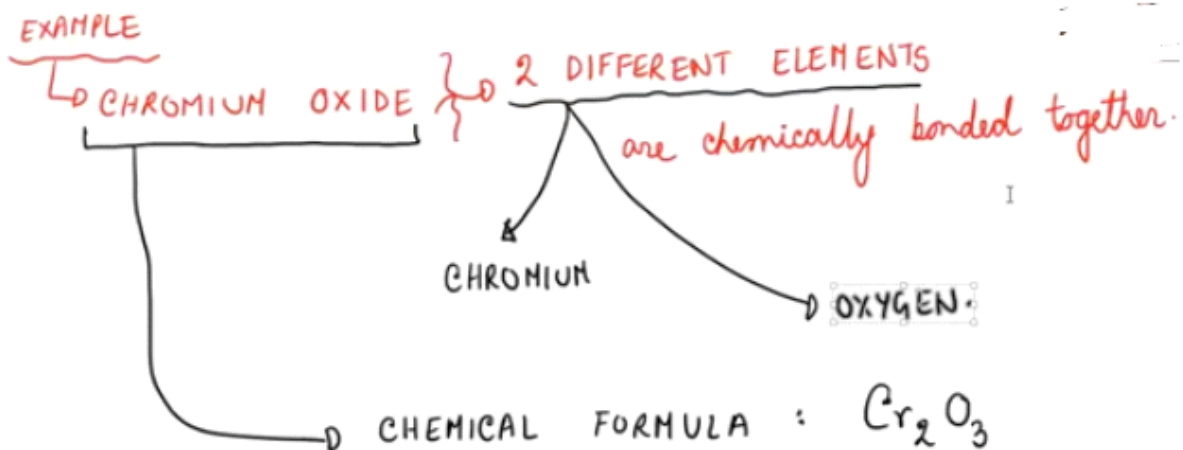 EXAMPLE
CHROMIUM OXIDE
2 DIFFERENT ELEMENTS
are chemically bonded together.
CHROMIUM
OXYGEN.
CHEMICAL FORMULA : Cr₂O₃